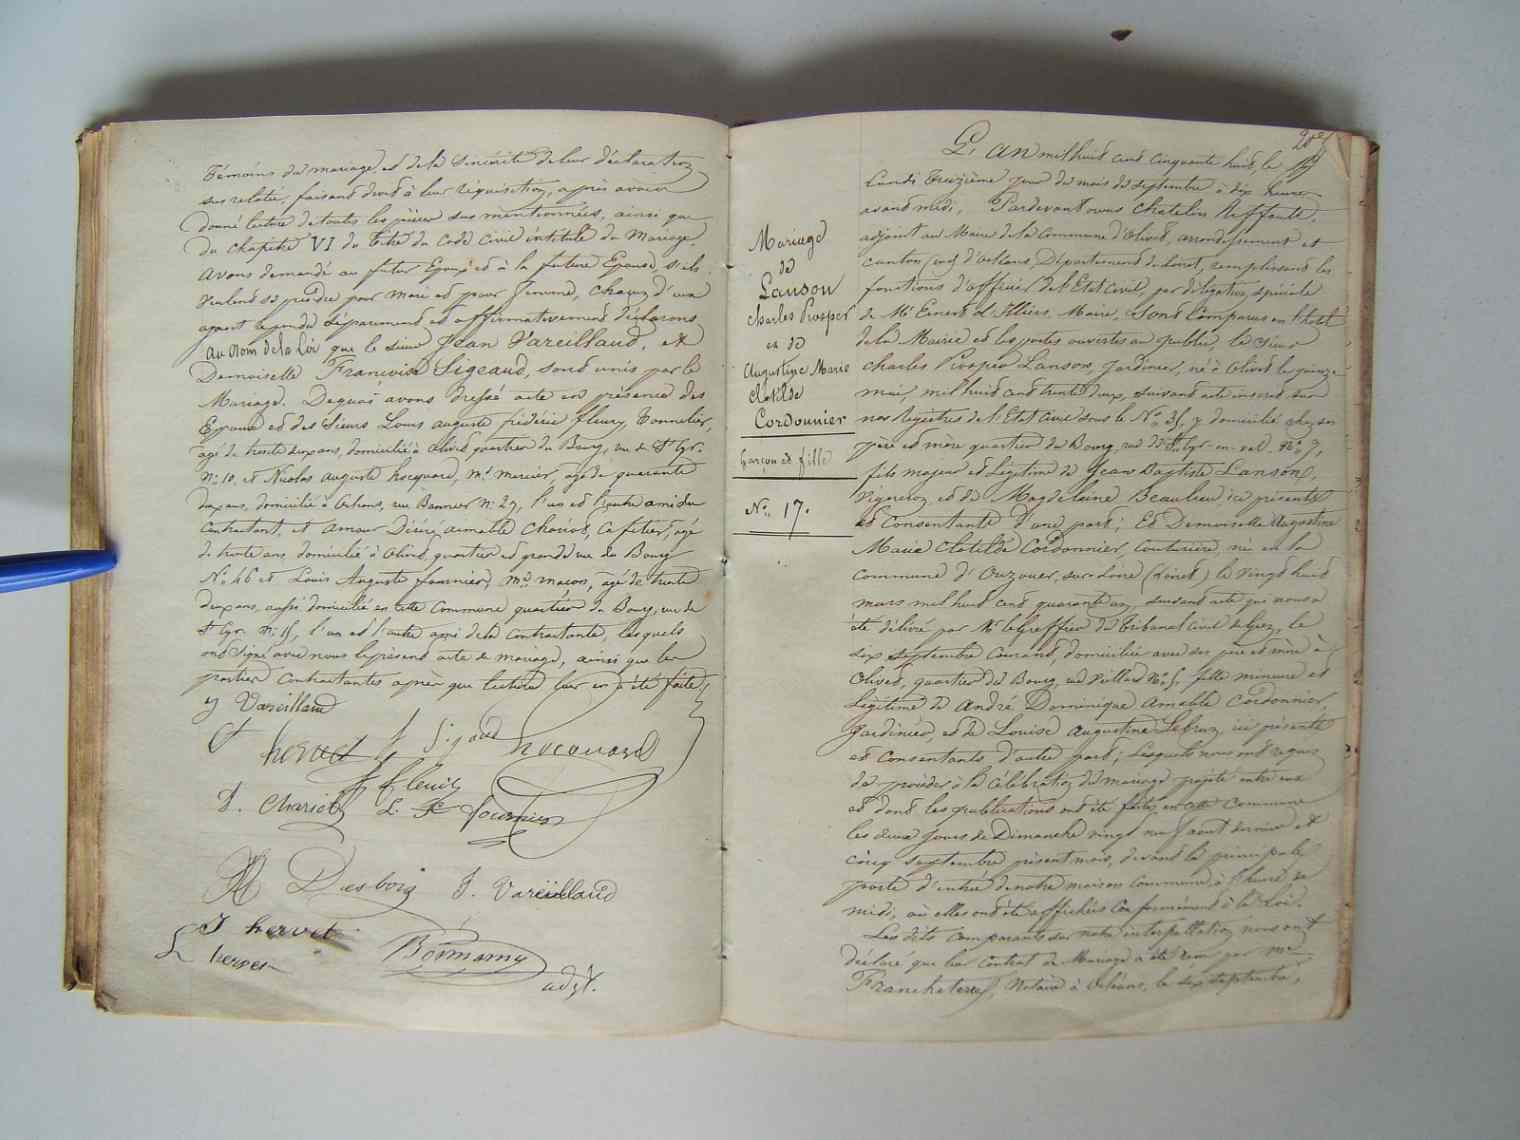 témoins du mariage, et de la sincérité de leur déclaration
sus relatée, faisant droit à leur réquisition, après avoir
donné lecture de toutes les pièces sus mentionnées, ainsi que
du chapitre VI du titre du Code Civil intitulé du Mariage,
avons demandé au futur Epoux et à la future Epouse, s'ils
veulent se prendre pour mari et pour femme, chacun d'eux
ayant répondu séparément et affirmativement déclarons
au nom de la loi que le sieur Jean Vareillaud, et
Demoiselle Françoise Sigeaud, sont unis par le
Mariage. De quoi avons dressé acte en présence des
Epoux et des Sieurs Louis auguste frédéric fleury, Tonnelier,
agé de trente deux ans, domicilié à Olivet quartier du Bourg, rue de St Cyr
No 10, et Nicolas auguste hocquard, Md mercier, agé de quarante
deux ans, domicilié à Orléans, rue Bannier No 27, l'un et l'autre amis du
contractant, et amour Désiré aimable Chariot, Cafetier, agé
de trente ans, domicilié à Olivet, quartier et grande rue du Bourg
No 46 et Louis Auguste fournier, Md macon, agé de trente
deux ans, aussi domicilié en cette Commune quartier du Bourg, rue de
St Cyr No 15, l'un et l'autre amis de la contractante, lesquels
ont signé avec nous le présent acte de mariage, ainsi que les
parties contractantes après que lecture leur en a été faite
Vareillaud
hervet Sigeaud hocquard
fleury
D. Chariot L. A fournier
Desbois J. Vareillaud
J hervet
L herve Bommamy
adjt.
L'an mil huit cent cinquante huit, le
Lundi treizième jour du mois de septembre à dix heures
avant midi, Pardevant nous Chatelin
adjoint au Maire de la Commune d'Olivet, arrondissement et
canton sud d'orléans, Département du Loiret, remplissant les
fonctions d'officier de l'Etat Civil, par délégation spéciale
de Mr Maire. Sont Comparus en l'hotel
de la Mairie et les portes ouvertes au public, le Sieur
Charles Prosper Lanson, Jardinier, né à Olivet le quinze
mai, mil huit cent trente deux, suivant acte inscrit sur
nos Registres de l'Etat Civil sous le No 35, y domicilié chez ses
père et mère quartier du Bourg, rue de St Cyr-en-val No 7,
fils majeur et Légitime de Jean Baptiste Lanson,
Vigneron, et de Magdelaine Beaulieu ici présents
et Consentants d'une part; Et Demoiselle Augustine
Marie Clotilde Cordonnier, Couturière, née en la
commune d'Ouzouer, sur-Loire (Loiret) le vingt huit
mars mil huit cent quarante un, suivant acte qui nous a
été délivré par Mr le Greffier du Tribunal Civil de Gien, le
six septembre Courant, domiciliée avec ses père et mère à
Olivet, quartier du Bourg, rue No 5, fille mineure et
Légitime de André Dominique Amable Cordonnier,
Jardinier, et de Louise Augustine ici présents
et Consentants d'autre part; Lesquels nous ont requis
de procéder à la Célébration du mariage projeté entre eux
et dont les publications ont été faites en cette Commune
les deux jours de Dimanche vingt neuf août dernier et
cinq septembre présent mois, devant la principale
porte d'entrée de notre maison Commune, à l'heure de
midi, où elles ont été affichées Conformément à la Loi.
Les dits comparants sur notre interpellation nous ont
déclaré que leur contrat de Mariage a été reçu par Me
Francheterre, Notaire à Orléans, le six septembre,
Mariage
de
Lanson
Charles Prosper
et de
Augustine Marie
Clotilde
Cordonnier
Garçon et fille
No 17.